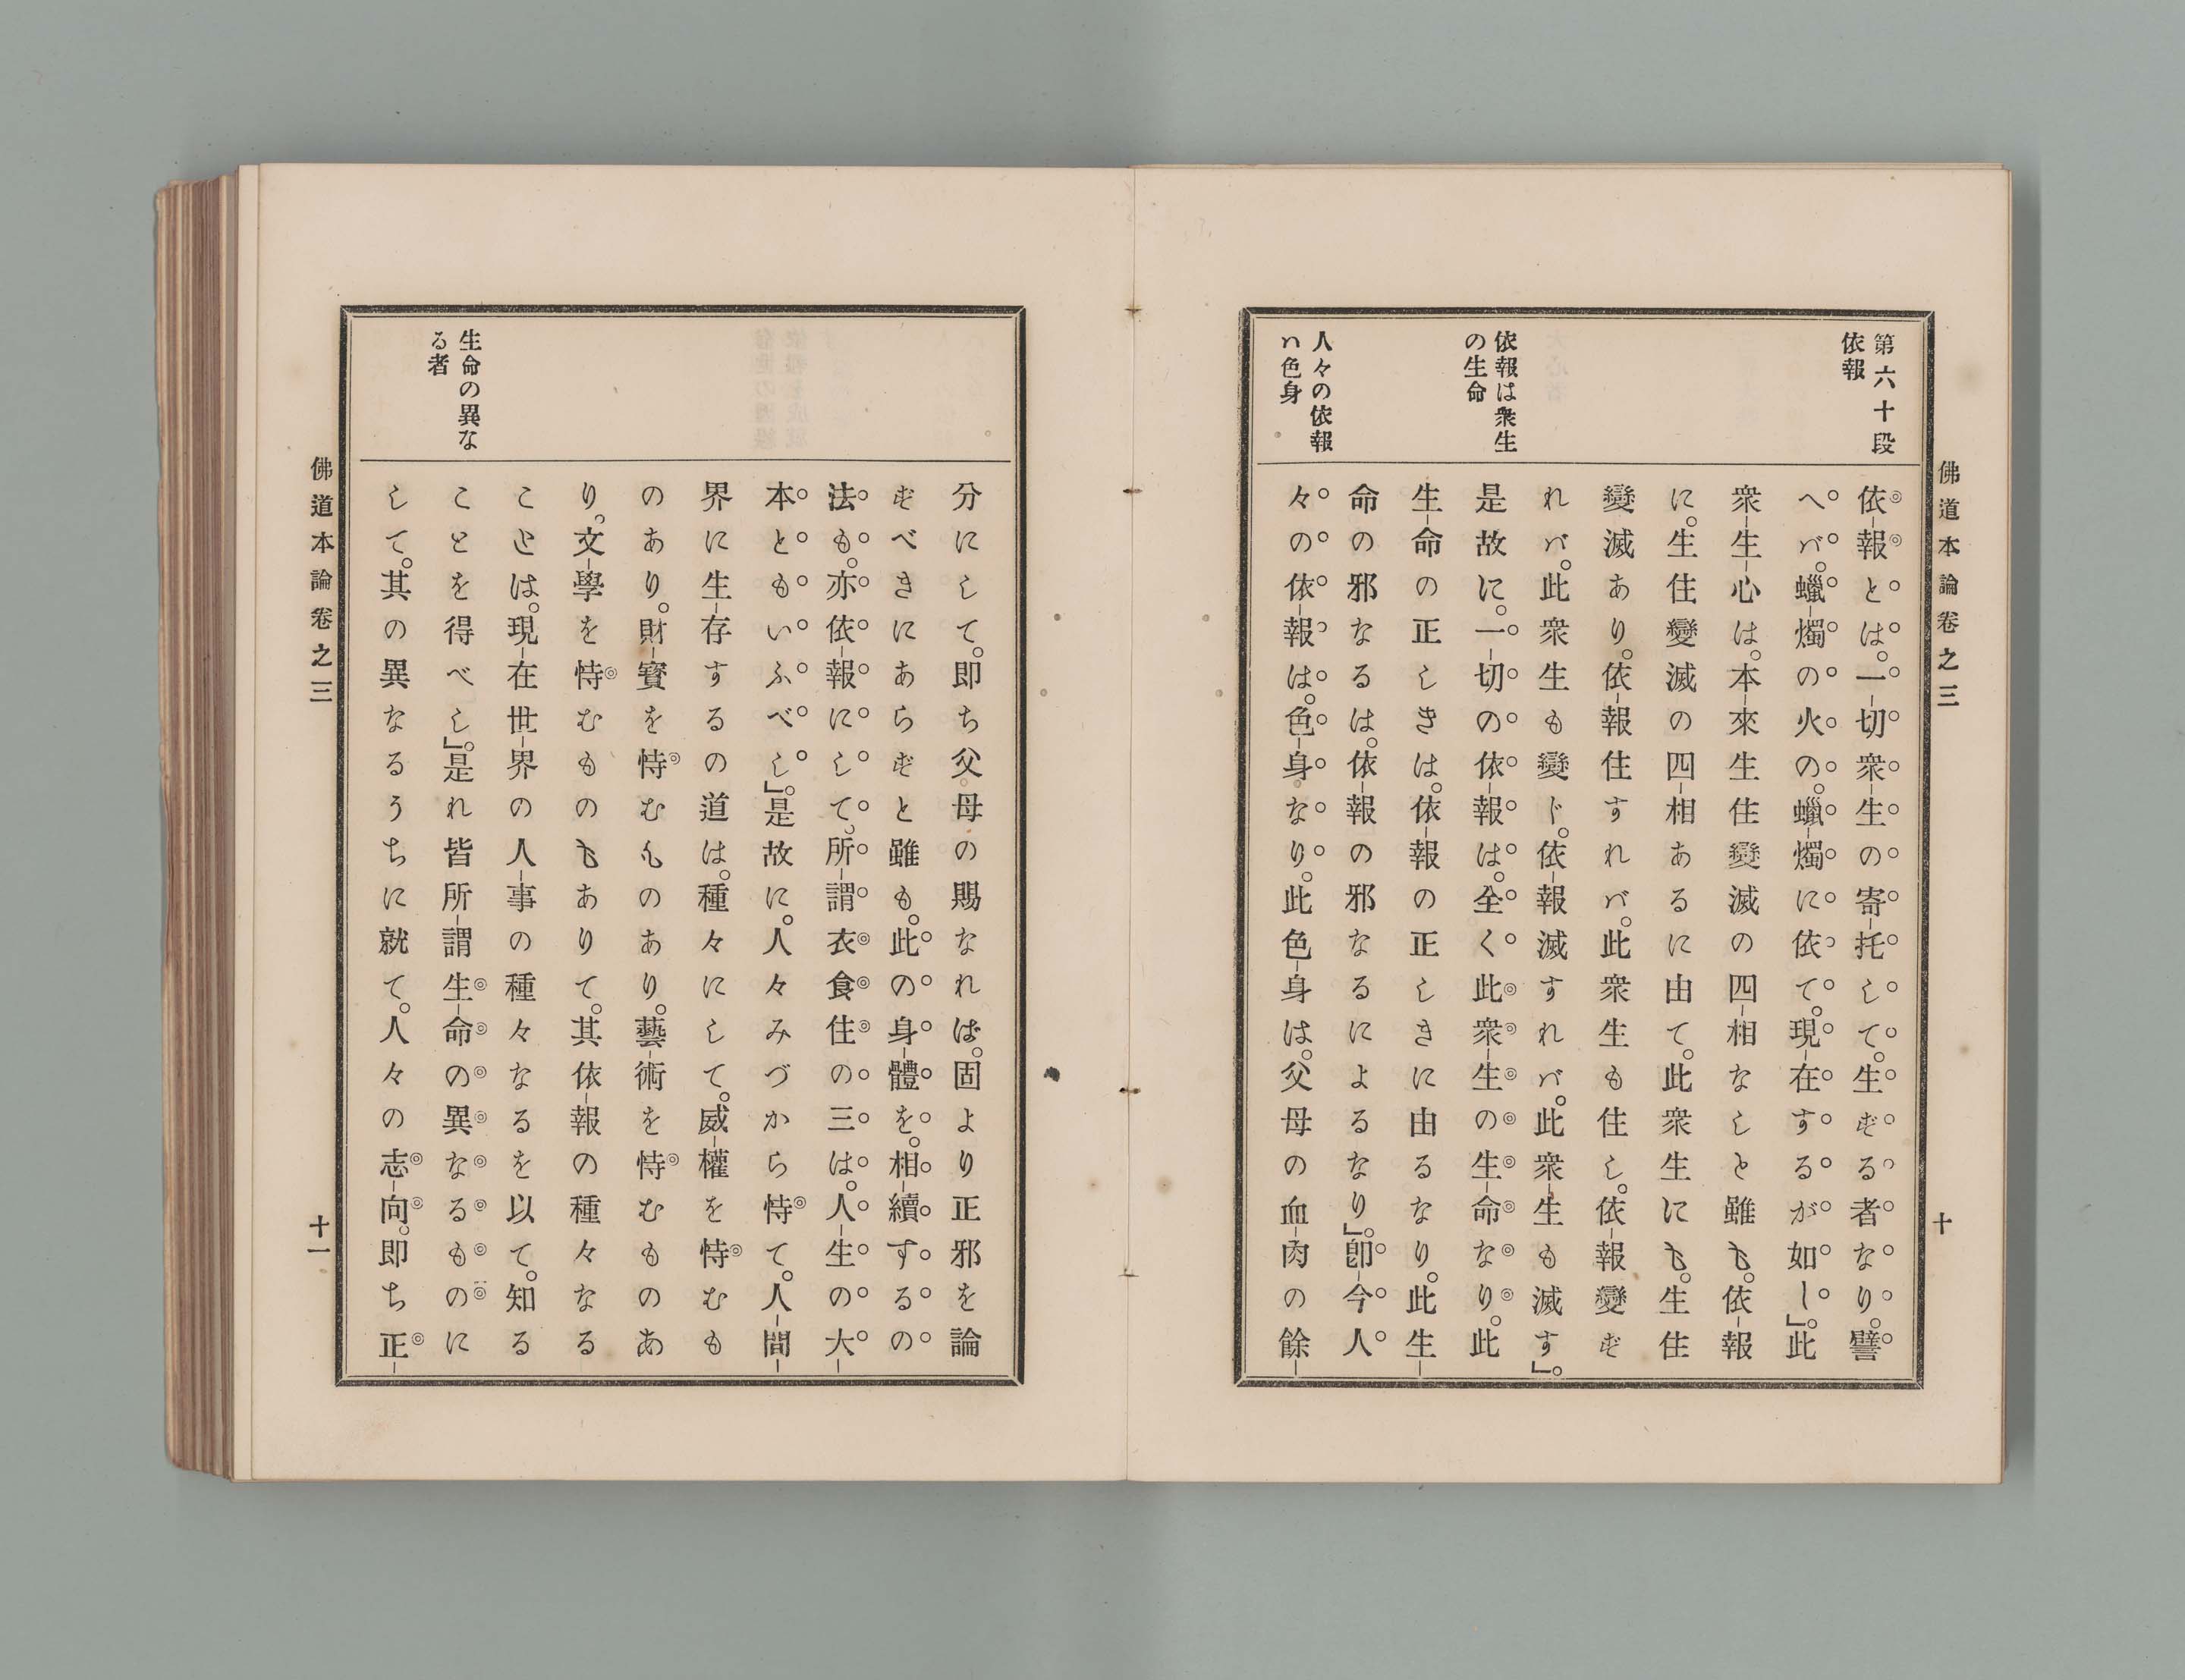 佛道本論卷之三
十
第六十段
依報
依報は衆生
の生命
人々の依報
ハ色身
依報とは。一切衆生の寄托して。生ずる者なり。譬
へバ。蠟燭の火の。蠟燭に依て。現在するが如し」。此
衆生心は。本來生住變滅の四相なしと雖も。依報
に。生住變滅の四相あるに由て。此衆生にも。生住
變滅あり。依報住すれバ。此衆生も住し。依報變ず
れバ。此衆生も變ド。依報滅すれバ。此衆生も滅す」。
是故に。一切の依報は。全く此衆生の生命なり。此
生命の正しきは。依報の正しきに由るなり。此生
命の邪なるは。依報の邪なるによるなり」。卽今人
々の依報は。色身なり。此色身は。父母の血肉の餘
分にして。即ち父母の賜なれば。固より正邪を論
ずべきにあらずと雖も。此の身體を。相續するの
法も。亦依報にして。所謂衣食住の三は。人生の大
本ともいふべし」。是故に。人々みづから恃て。人間
界に生存するの道は。種々にして。威權を恃むも
のあり。財寳を恃むものあり。藝術を恃むものあ
り。文學を恃むものもありて。其依報の種々なる
ことは。現在世界の人事の種々なるを以て。知る
ことを得べし」。是れ皆所謂生命の異なるものに
して。其の異なるうちに就て。人々の志向。即ち正
生命の異な
る者
佛道本論卷之三
十一